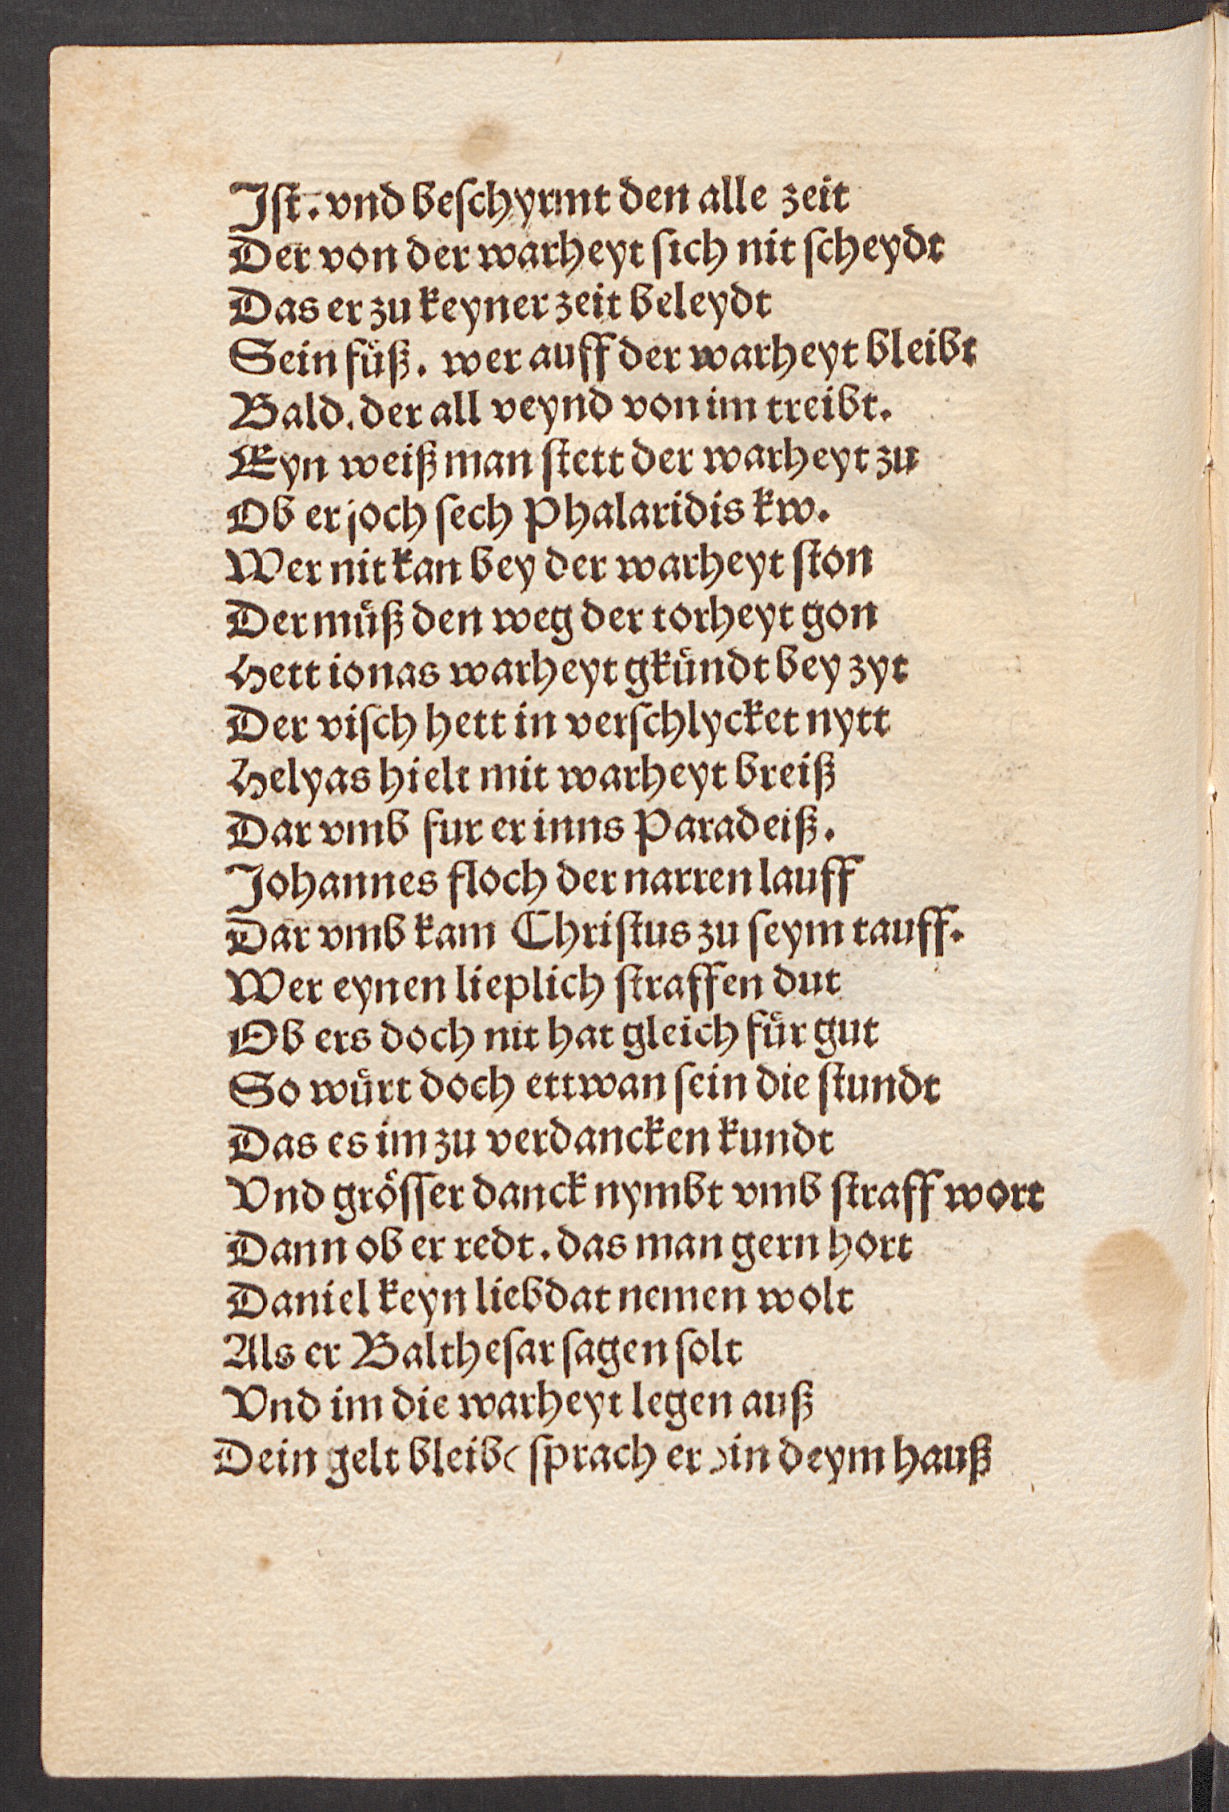 Jſt. vnd beſchyrmt den alle zeit
Der von der warheyt ſich nit ſcheydt
Das er zu keyner zeit beleydt
Sein füß. wer auff der warheyt bleibt
Bald. der all veynd von im treibt.
Eyn weiß man ſtett der warheyt zu
Ob er joch ſech Phalaridis kw.
Wer nit kan bey der warheyt ſton
Der müß den weg der torheyt gon
Hett ionas warheyt gkündt bey zyt
Der viſch hett in verſchlycket nytt
Helyas hielt mit warheyt breiß
Dar vmb fur er inns Paradeiß.
Johannes floch der narren lauff
Dar vmb kam Chriſtus zu ſeym tauff.
Wer eynen lieplich ſtraffen dut
Ob ers doch nit hat gleich für gut
So würt doch ettwan ſein die ſtundt
Das es im zu verdancken kundt
Vnd gröſſer danck nymbt vmb ſtraff wort
Dann ob er redt. das man gern hort
Daniel keyn liebdat nemen wolt
Als er Baltheſar ſagen ſolt
Vnd im die warheyt legen auß
Dein gelt bleib( ſprach er )in deym hauß